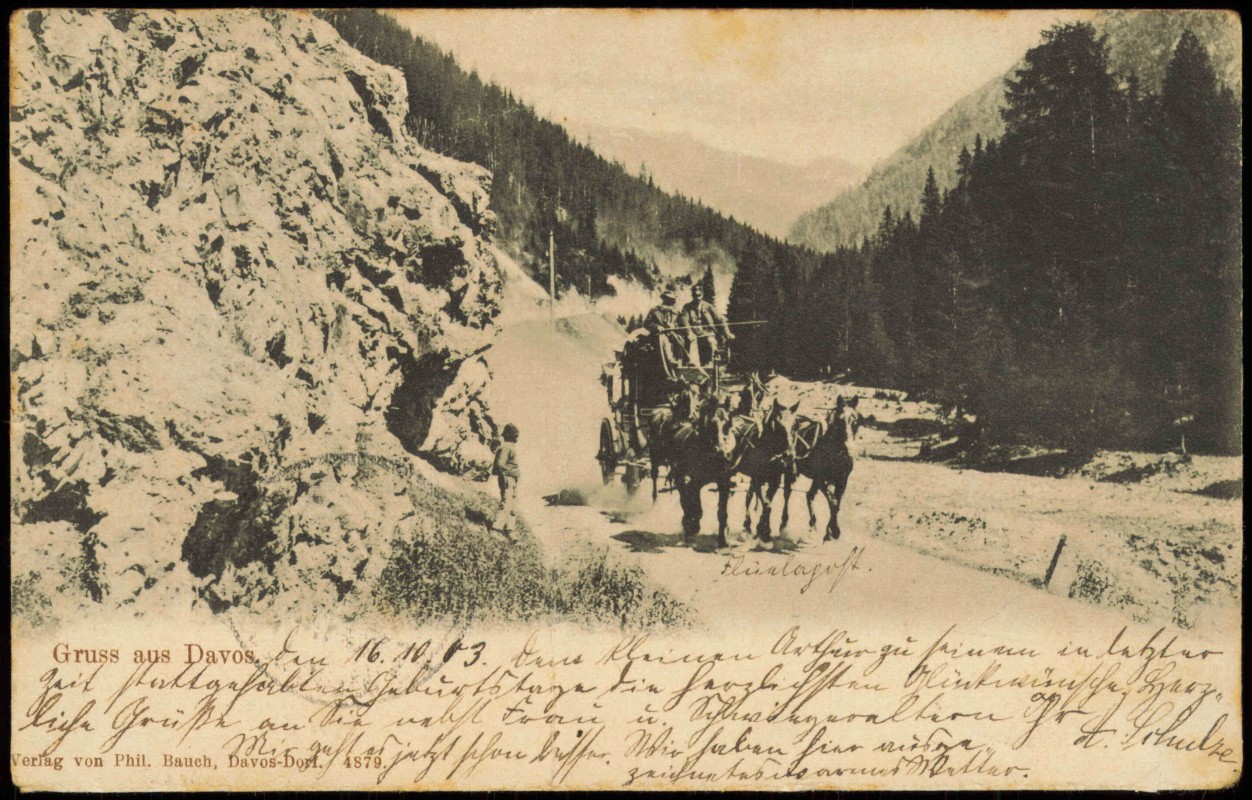 Flüelapost.
Gruss aus Davos. den 16.10.03. Dem kleinen Arthur zu seinem in letzter
Zeit stattgehabten Geburtstage die herzlichsten Glückwünsche. Herz-
liche Grüße an Sie nebst Frau u. Schwiegereltern Ihr A. Schulze
Mir geht es jetzt schon besser. Wir haben hier ausge-
zeichnetes warmes Wetter.
Verlag von Phil. Bauch, Davos-Dorf. 4879.